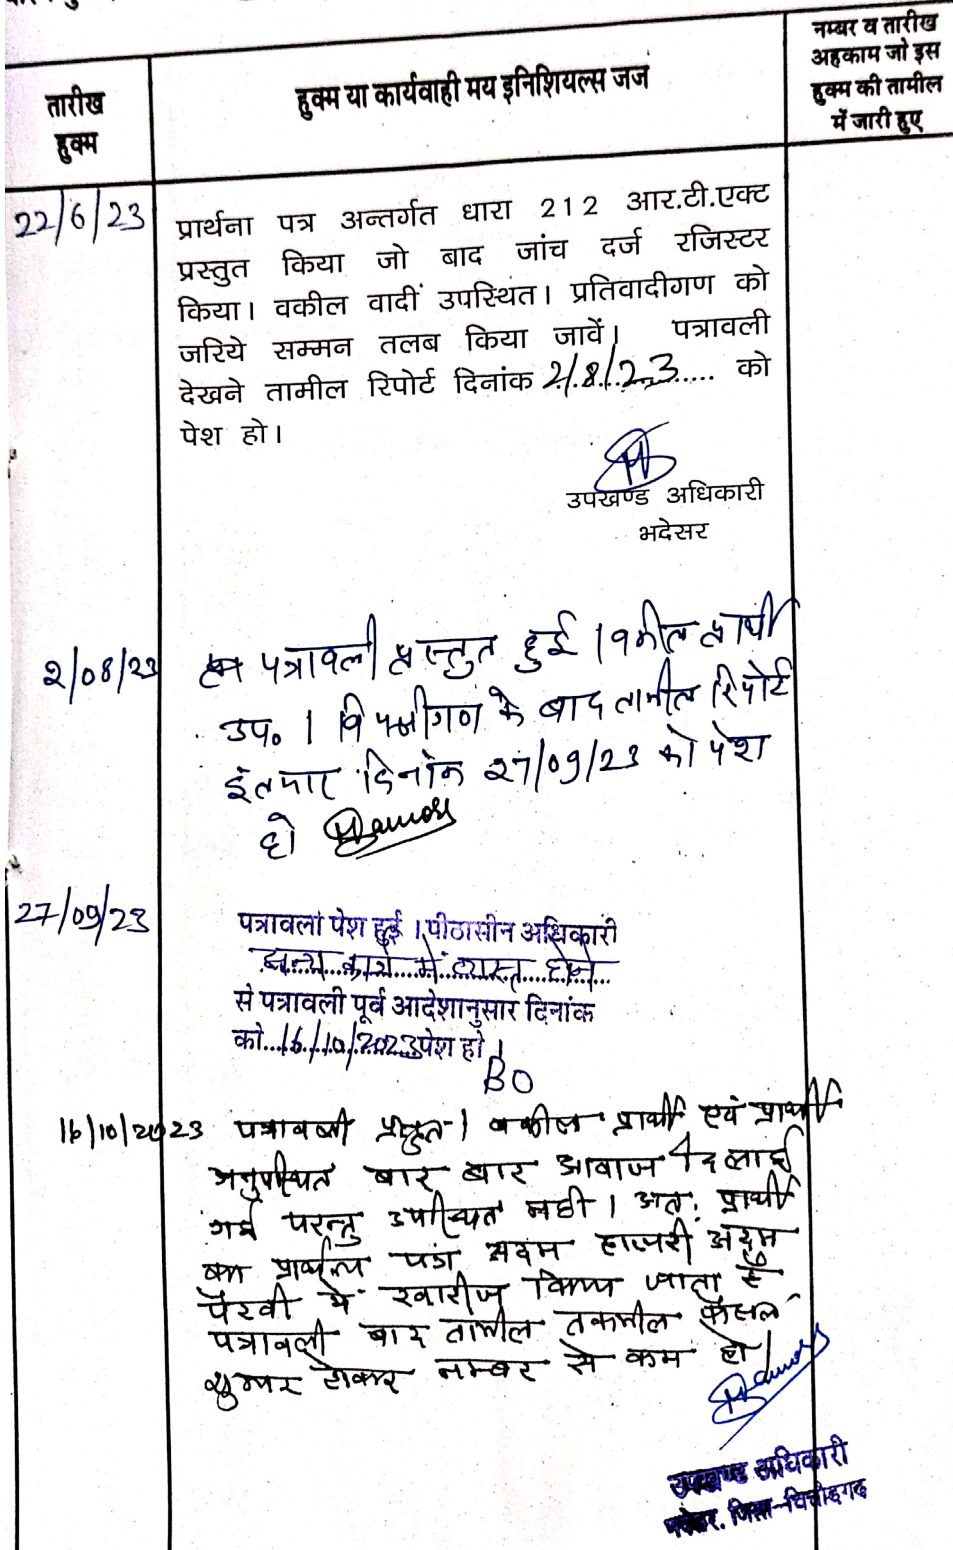 तारीख
हुक्म
हुक्म या कार्यवाही मय इनिशियल्स जज
नम्बर व तारीख
अहकाम जो इस
हुक्म की तामील
में जारी हुए
22/6/23
प्रार्थना पत्र अन्तर्गत धारा 212 आर.टी.एक्ट
प्रस्तुत किया जो बाद जांच दर्ज रजिस्टर
किया। वकील वादीं उपस्थित। प्रतिवादीगण को
जरिये सम्मन तलब किया जावें। पत्रावली
देखने तामील रिपोर्ट दिनांक 2/8/23 को
पेश हो।
उपखण्ड अधिकारी
भदेसर
2/08/23
पत्रावली प्रस्तुत हुई । वकील प्रार्थी
उप० । विपक्षीगण के बाद तामील रिपोर्ट
इंतजार दिनांक 27/09/23 को पेश
हो
27/09/23
पत्रावली पेश हुई । पीठासीन अधिकारी
अन्य कार्य में व्यस्त होने
से पत्रावली पूर्व आदेशानुसार दिनांक
को 16/10/2023 पेश हो।
BO
16/10/2023 पत्रावली प्रस्तुत। वकील प्रार्थी एवं प्रार्थी
अनुपस्थित बार बार आवाज लगाई
गई परन्तु उपस्थित नही। अतः प्रार्थी
का प्रार्थना पत्र अदम हाजरी अदम
पैरवी में खारीज किया जाता है
पत्रावली बाद तामील तकमील फैसल
शुमार होकर नम्बर से कम हो।
उपखण्ड अधिकारी
भदेसर, जिला-चित्तौड़गढ़